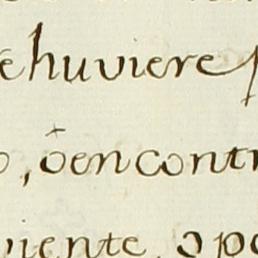 e huviere p
o, õ encontr
viente, o po